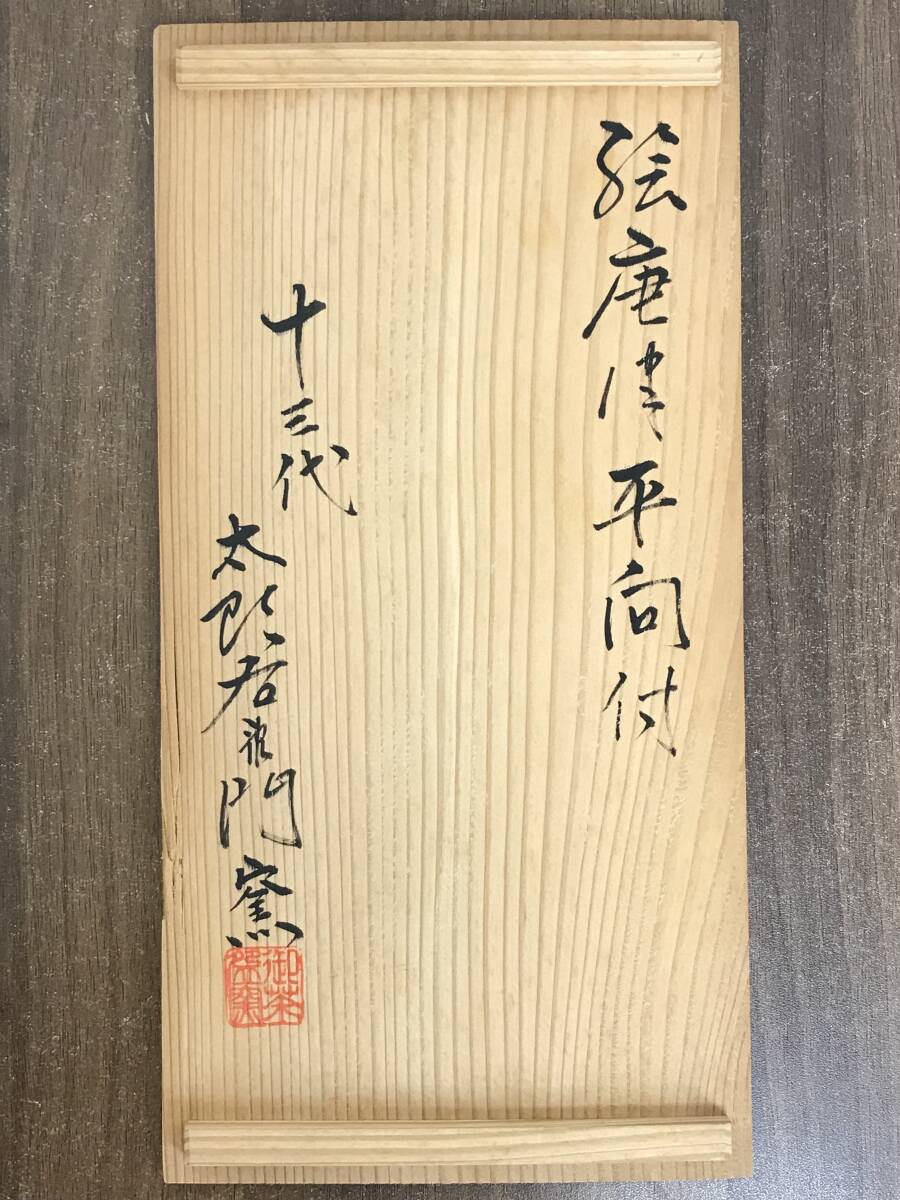 絵唐津平向付
十三代
太郎右衛門窯
御茶盌窯